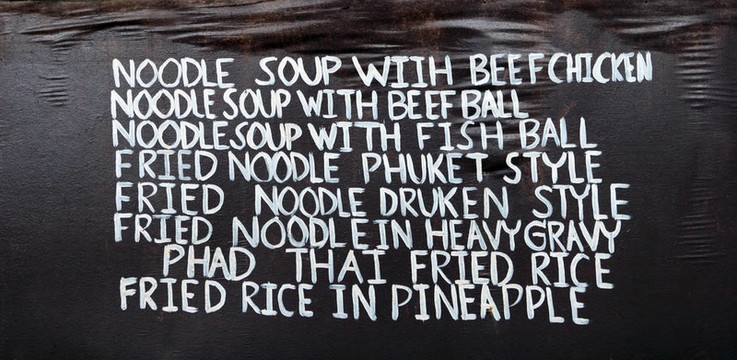 NOODLE SOUP WITH BEEF CHICKEN
NOODLE SOUP WITH BEEF BALL
NOODLE SOUP WITH FISH BALL
FRIED NOODLE PHUKET STYLE
FRIED NOODLE DRUKEN STYLE
FRIED NOODLE IN HEAVY GRAVY
PHAD THAI FRIED RICE
FRIED RICE IN PINEAPPLE